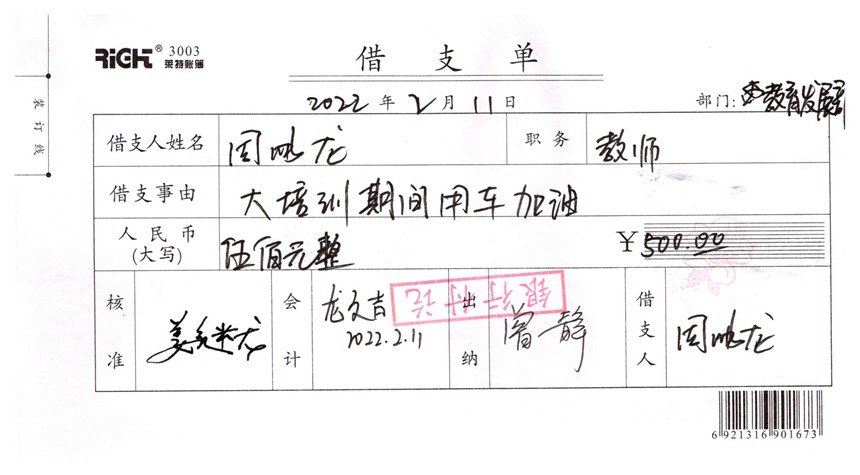 RiGHT® 3003
莱特账簿
借支单
装订线
2022年2月11日 部门: 教育发展部
借支人姓名 周帆龙 职务 教师
借支事由 大培训期间用车加油
人民币
(大写) 伍佰元整 ¥500.00
核准 会计 龙文吉 2022.2.11 出纳 曾静 借支人 周帆龙
银行付讫
6 921316 901673